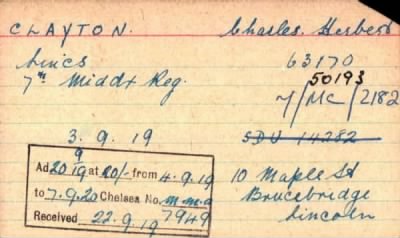 CLAYTON. Charles. Herbert
Lincs 63170
7th Middx Reg. 50193
7/MC/2182
3.9.19 SDU 14282
9
Ad 20 19 at 20/- from 4.9.19
to 7.9.20 Chelsea No. M.M.a
Received 22.9.19 7949
10 Maple St
Bracebridge
Lincoln